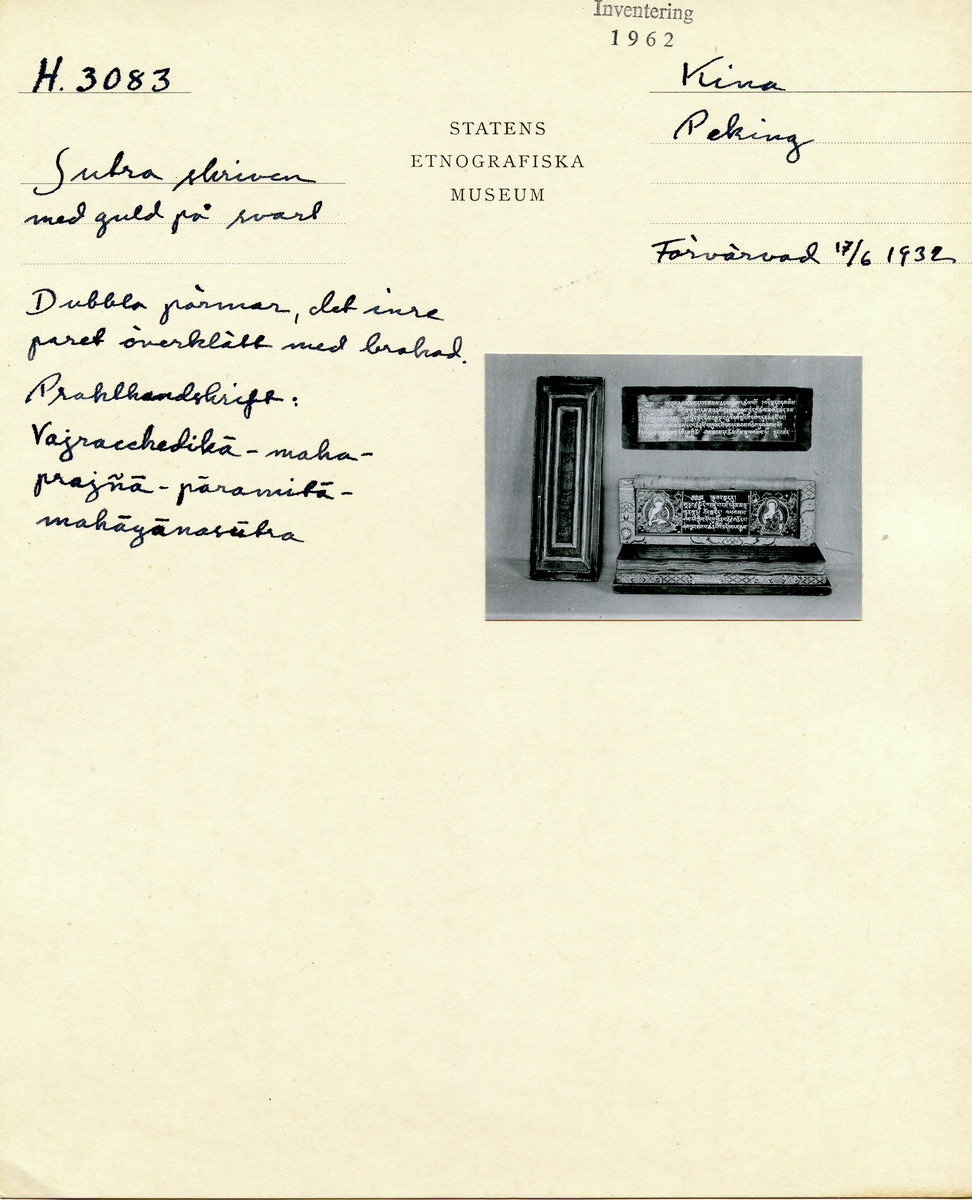 Inventering
1962
H. 3083
Kina
Peking
STATENS
ETNOGRAFISKA
MUSEUM
Sutra skriven
med guld på svart
Förvärvad 17/6 1932
Dubbla pärmar, det inre
paret överklätt med brokad.
Prakthandskrift:
Vajracchedikā - maha-
prajñā - pāramitā -
mahāyānasūtra